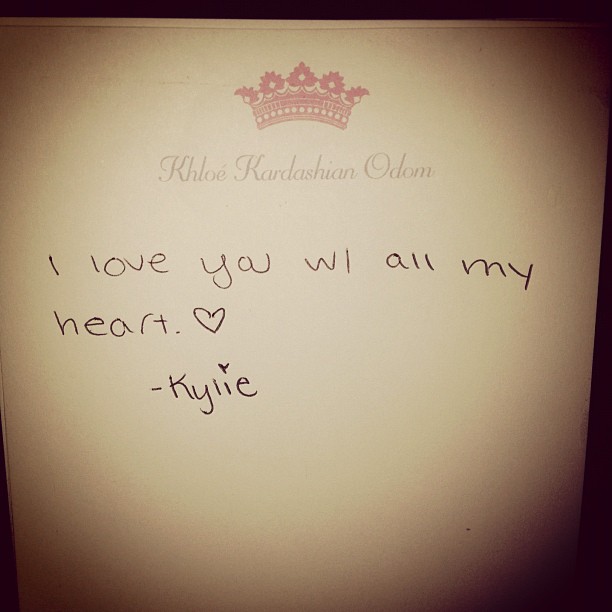 Khloé Kardashian Odom
I love you w/ all my
heart. ♡
-Kylie